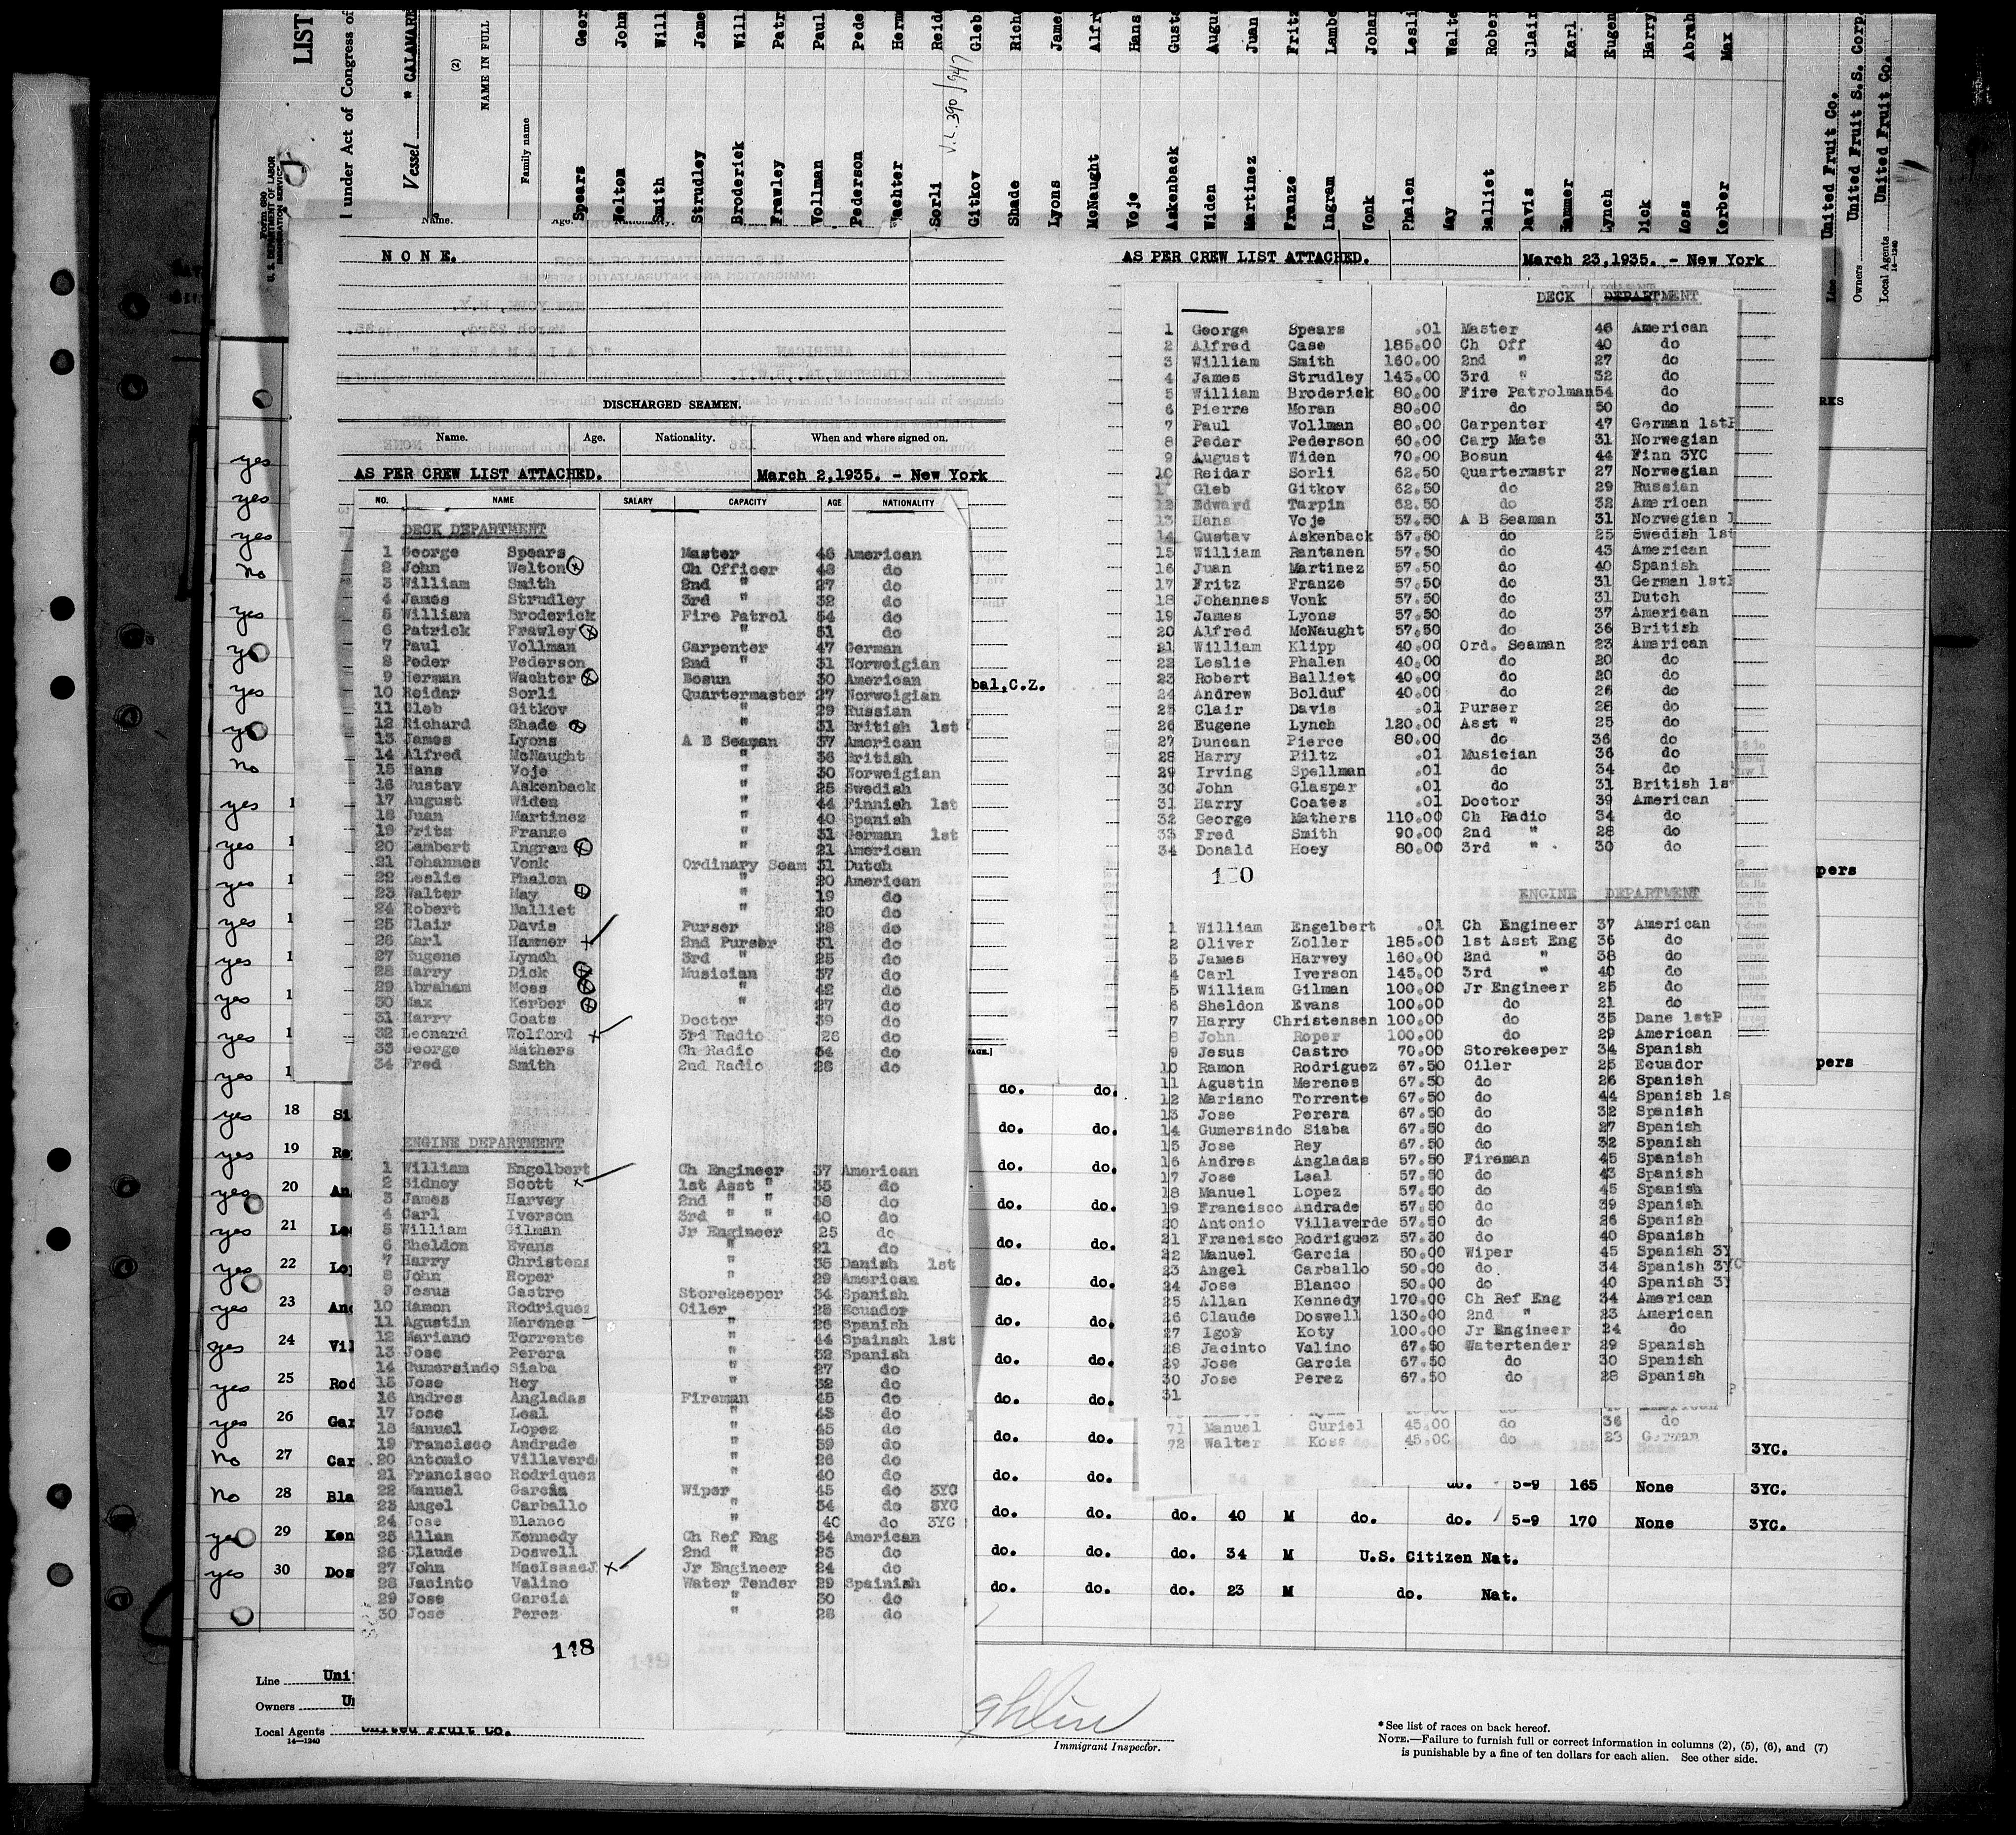 LIST
under Act of Congress of
Vessel " CALAMARE
Form 680
U. S. DEPARTMENT OF LABOR
IMMIGRATION SERVICE
(2)
NAME IN FULL
Family name
Spears Geor
Welton John
Smith Will
Strudley Jame
Broderick Will
Frawley Patr
Vollman Paul
Pederson Pede
Wachter Herm
Sorli Reid
V.L. 390/947
Gitkov Gleb
Shade Rich
Lyons Jame
McNaught Alfr
Voje Hans
Askenback Gust
Widen Augu
Martinez Juan
Franze Fritz
Ingram Lambe
Vonk Johan
Phalen Lesli
May Walte
Balliet Rober
Davis Clair
Hammer Karl
Lynch Eugen
Dick Harry
Moss Abrah
Kerber Max
Line United Fruit Co.
Owners United Fruit S.S. Corp.
Local Agents United Fruit Co.
14—1240
Name. Age. Nationality.
N O N E.
DISCHARGED SEAMEN.
Name. Age. Nationality. When and where signed on.
AS PER CREW LIST ATTACHED. March 2,1935. - New York
NO. NAME SALARY CAPACITY AGE NATIONALITY
DECK DEPARTMENT
1 George Spears Master 46 American
2 John Welton Ch Officer 48 do
3 William Smith 2nd " 27 do
4 James Strudley 3rd " 32 do
5 William Broderick Fire Patrol 54 do
6 Patrick Frawley " 51 do
7 Paul Vollman Carpenter 47 German
8 Peder Pederson 2nd " 31 Norweigian
9 Herman Wachter Bosun 30 American
10 Reidar Sorli Quartermaster 27 Norweigian
11 Gleb Gitkov " 29 Russian
12 Richard Shade " 31 British 1st
13 James Lyons A B Seaman 37 American
14 Alfred McNaught " 36 British
15 Hans Voje " 30 Norweigian
16 Gustav Askenback " 25 Swedish
17 August Widen " 44 Finnish 1st
18 Juan Martinez " 40 Spanish
19 Fritz Franze " 31 German 1st
20 Lambert Ingram " 21 American
21 Johannes Vonk Ordinary Seam 31 Dutch
22 Leslie Phalen " 20 American
23 Walter May " 19 do
24 Robert Balliet " 20 do
25 Clair Davis Purser 28 do
26 Karl Hammer 2nd Purser 31 do
27 Eugene Lynch 3rd " 25 do
28 Harry Dick Musician 37 do
29 Abraham Moss " 42 do
30 Max Kerber " 27 do
31 Harry Coats Doctor 39 do
32 Leonard Wolford 3rd Radio 26 do
33 George Mathers Ch Radio 34 do
34 Fred Smith 2nd Radio 28 do
ENGINE DEPARTMENT
1 William Engelbert Ch Engineer 37 American
2 Sidney Scott 1st Asst " 35 do
3 James Harvey 2nd " " 38 do
4 Carl Iverson 3rd " " 40 do
5 William Gilman Jr Engineer 25 do
6 Sheldon Evans " 21 do
7 Harry Christens " 35 Danish 1st
8 John Roper " 29 American
9 Jesus Castro Storekeeper 34 Spanish
10 Ramon Rodriquez Oiler 25 Ecuador
11 Agustin Merenes " 26 Spanish
12 Mariano Torrente " 44 Spainsh 1st
13 Jose Perera " 32 Spanish
14 Gumersindo Siaba " 27 do
15 Jose Rey " 32 do
16 Andres Angladas Fireman 45 do
17 Jose Leal " 43 do
18 Manuel Lopez " 45 do
19 Francisco Andrade " 39 do
20 Antonio Villaverd " 26 do
21 Francisco Rodriquez " 40 do
22 Manuel Garcia Wiper 45 do 3YC
23 Angel Carballo " 34 do 3YC
24 Jose Blanco " 40 do 3YC
25 Allan Kennedy Ch Ref Eng 34 American
26 Claude Doswell 2nd " 23 do
27 John MacIsaacJ Jr Engineer 24 do
28 Jacinto Valino Water Tender 29 Spainish
29 Jose Garcia " 30 do
30 Jose Perez " 28 do
118
AS PER CREW LIST ATTACHED. March 23,1935. - New York
DECK DEPARTMENT
1 George Spears .01 Master 46 American
2 Alfred Case 185.00 Ch Off 40 do
3 William Smith 160.00 2nd " 27 do
4 James Strudley 145.00 3rd " 32 do
5 William Broderick 80.00 Fire Patrolman 54 do
6 Pierre Moran 80.00 do 50 do
7 Paul Vollman 80.00 Carpenter 47 German 1stP
8 Peder Pederson 60.00 Carp Mate 31 Norwegian
9 August Widen 70.00 Bosun 44 Finn 3YC
10 Reidar Sorli 62.50 Quartermstr 27 Norwegian
11 Gleb Gitkov 62.50 do 29 Russian
12 Edward Tarpin 62.50 do 32 American
13 Hans Voje 57.50 A B Seaman 31 Norwegian 1
14 Gustav Askenback 57.50 do 25 Swedish 1st
15 William Rantanen 57.50 do 43 American
16 Juan Martinez 57.50 do 40 Spanish
17 Fritz Franze 57.50 do 31 German 1stP
18 Johannes Vonk 57.50 do 31 Dutch
19 James Lyons 57.50 do 37 American
20 Alfred McNaught 57.50 do 36 British
21 William Klipp 40.00 Ord. Seaman 23 American
22 Leslie Phalen 40.00 do 20 do
23 Robert Balliet 40.00 do 20 do
24 Andrew Bolduf 40.00 do 26 do
25 Clair Davis .01 Purser 28 do
26 Eugene Lynch 120.00 Asst " 25 do
27 Duncan Pierce 80.00 do 36 do
28 Harry Piltz .01 Musician 36 do
29 Irving Spellman .01 do 34 do
30 John Glaspar .01 do 31 British 1s
31 Harry Coates .01 Doctor 39 American
32 George Mathers 110.00 Ch Radio 34 do
33 Fred Smith 90.00 2nd " 28 do
34 Donald Hoey 80.00 3rd " 30 do
ENGINE DEPARTMENT
1 William Engelbert .01 Ch Engineer 37 American
2 Oliver Zoller 185.00 1st Asst Eng 36 do
3 James Harvey 160.00 2nd " 38 do
4 Carl Iverson 145.00 3rd " 40 do
5 William Gilman 100.00 Jr Engineer 25 do
6 Sheldon Evans 100.00 do 21 do
7 Harry Christensen 100.00 do 35 Dane 1stP
8 John Roper 100.00 do 29 American
9 Jesus Castro 70.00 Storekeeper 34 Spanish
10 Ramon Rodriguez 67.50 Oiler 25 Ecuador
11 Agustin Merenes 67.50 do 26 Spanish
12 Mariano Torrente 67.50 do 44 Spanish 1s
13 Jose Perera 67.50 do 32 Spanish
14 Gumersindo Siaba 67.50 do 27 Spanish
15 Jose Rey 67.50 do 32 Spanish
16 Andres Angladas 57.50 Fireman 45 Spanish
17 Jose Leal 57.50 do 43 Spanish
18 Manuel Lopez 57.50 do 45 Spanish
19 Francisco Andrade 57.50 do 39 Spanish
20 Antonio Villaverde 57.50 do 26 Spanish
21 Francisco Rodriguez 57.50 do 40 Spanish
22 Manuel Garcia 50.00 Wiper 45 Spanish 3Y
23 Angel Carballo 50.00 do 34 Spanish 3YC
24 Jose Blanco 50.00 do 40 Spanish 3Y
25 Allan Kennedy 170.00 Ch Ref Eng 34 American
26 Claude Doswell 130.00 2nd " 23 American
27 Igor Koty 100.00 Jr Engineer 24 do
28 Jacinto Valino 67.50 Watertender 29 Spanish
29 Jose Garcia 67.50 do 30 Spanish
30 Jose Perez 67.50 do 28 Spanish
31
71 Manuel Curiel 45.00 do 36 do
72 Walter Koss 45.00 do 23 German
bal,C.Z.
RKS
pers
pers
yes
yes
yes
No
yes
yes
yes
yes
No
yes 1
yes 1
yes 1
yes 1
yes 1
yes 1
yes 1
yes 1
yes 18 Si do. do.
yes 19 Re do. do.
yes 20 An do. do.
yes 21 Le do. do.
yes 22 Lo do. do.
yes 23 And do. do.
yes 24 Vil do. do.
yes 25 Rod do. do.
yes 26 Gar do. do.
No 27 Car do. do. 3YC.
No 28 Bla do. do. do. 5-9 165 None 3YC.
yes 29 Ken do. do. do. 40 M do. do. 5-9 170 None 3YC.
yes 30 Dos do. do. do. 34 M U.S. Citizen Nat.
do. do. do. 23 M do. Nat.
Line Uni
Owners U
Local Agents United Fruit Co.
14—1240
Immigrant Inspector.
*See list of races on back hereof.
NOTE.—Failure to furnish full or correct information in columns (2), (5), (6), and (7)
is punishable by a fine of ten dollars for each alien. See other side.